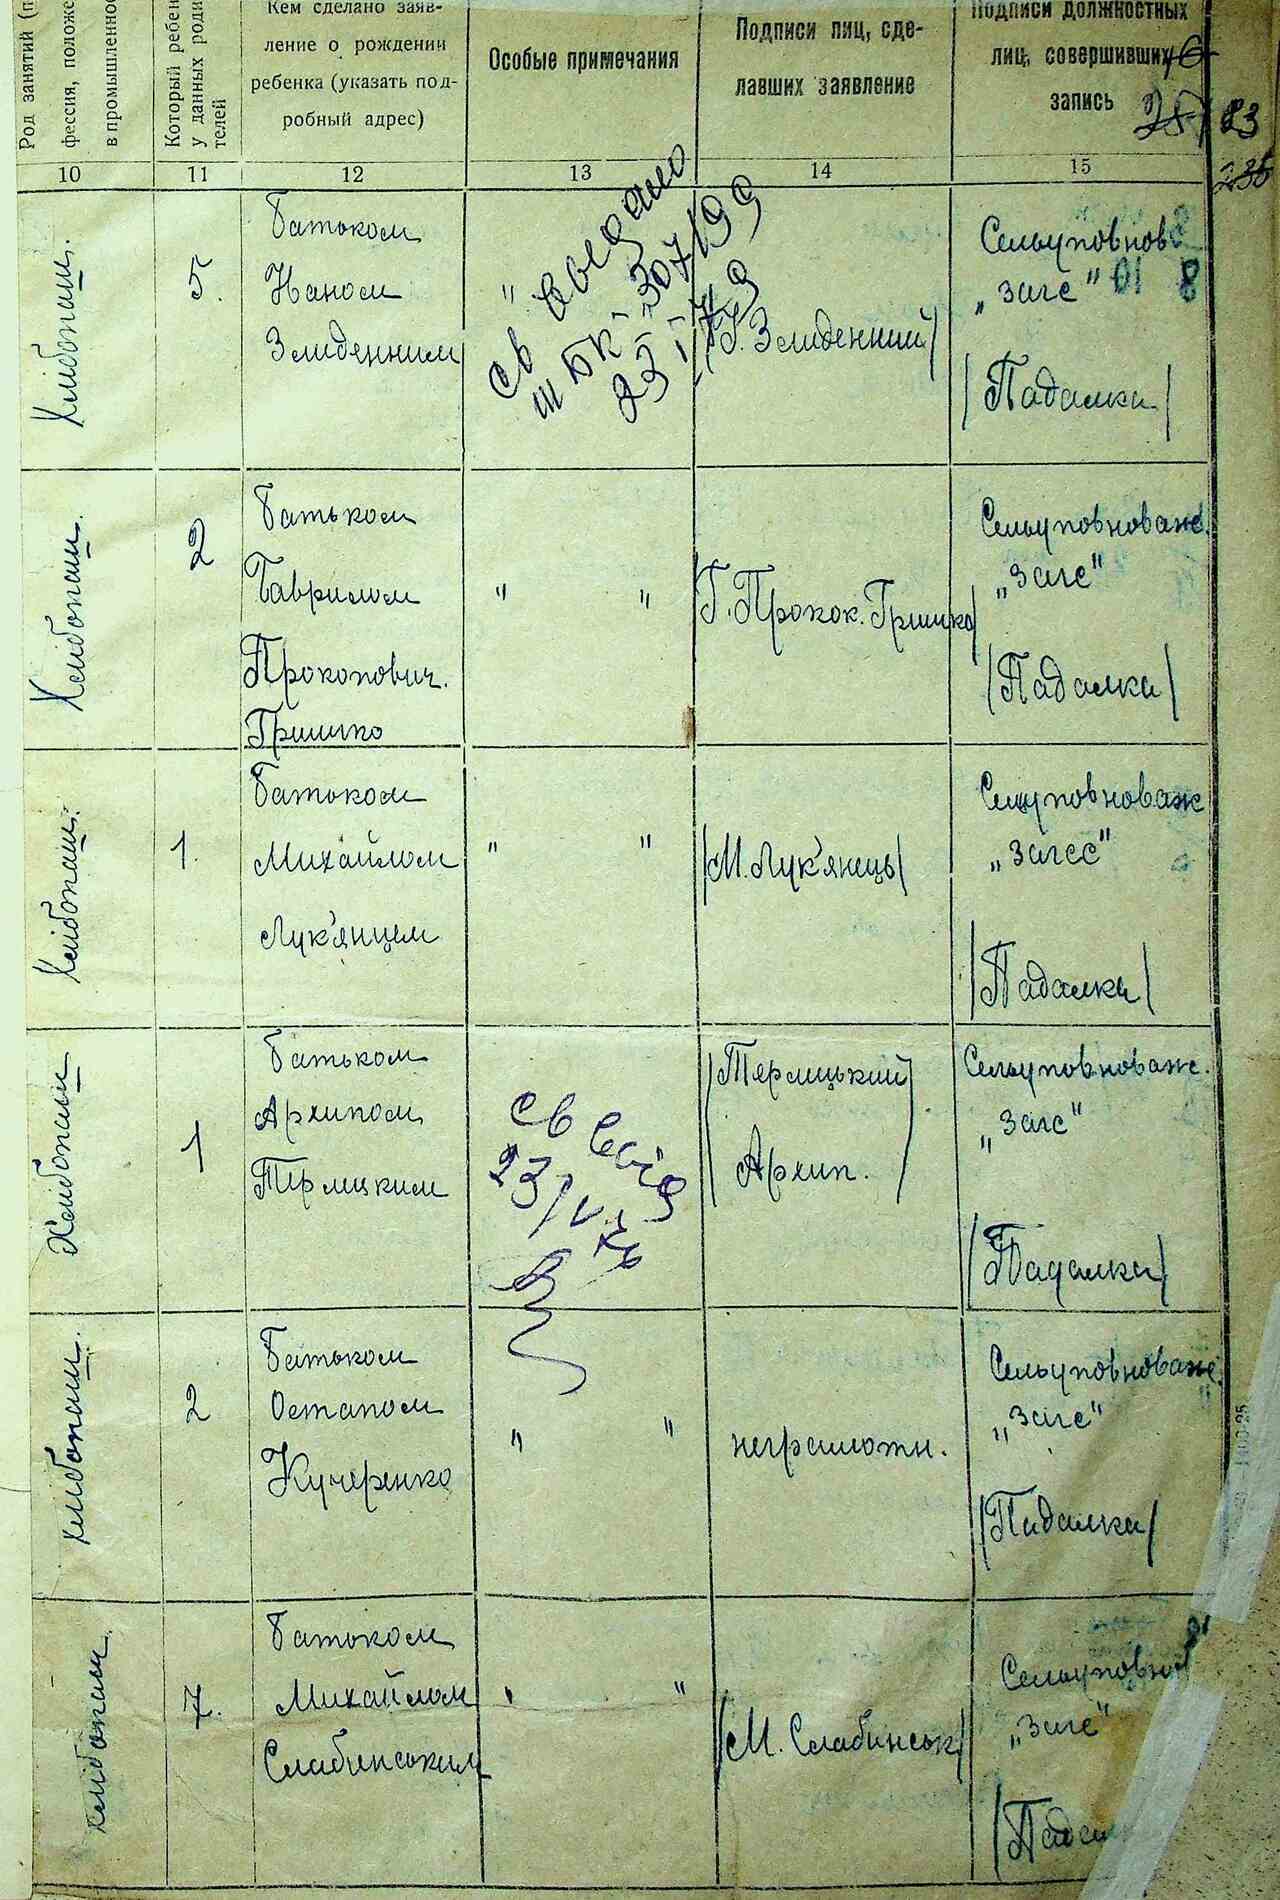 Род занятий
фессия, положе
в промышленнос
Который ребен
у данных роди
телей
Кем сделано заяв-
ление о рождении
ребенка (указать под-
робный адрес)
Особые примечания
Подписи лиц, сде-
лавших заявление
Подписи должностных
лиц, совершивших
запись
46
23
235
10 11 12 13 14 15
Хлібопаш.
5.
Батьком
Іваном
Злиденним
"
Св выдано
БК
307199
/І. Злиденний/
Сельуповнов
„Загс"
/Падалка/
Хлібопаш.
2
Батьком
Гаврилом
Прокопович.
Гришко
" "
Г. Прокок. Гришко/
Сельуповноваж.
„Загс"
/Падалка/
Хлібопаш.
1.
Батьком
Михайлом
Лук'янцем
" "
/М. Лук'янець/
Сельуповноваж
„Загсс"
/Падалка/
Хлібопаш
1
Батьком
Архипом
Терлицким
Св
23/V
/Терлицький
Архип./
Сельуповноваж.
„Загс"
/Падалка/
Хлібопаш.
2
Батьком
Остапом
Кучеренко
" "
неграмотн.
Сельуповноваж.
„Загс"
/Падалка/
Хлібопаш
7.
Батьком
Михайлом
Слабинським
" "
/М. Слабинськ/
Сельуповнов
„Загс"
/Падал